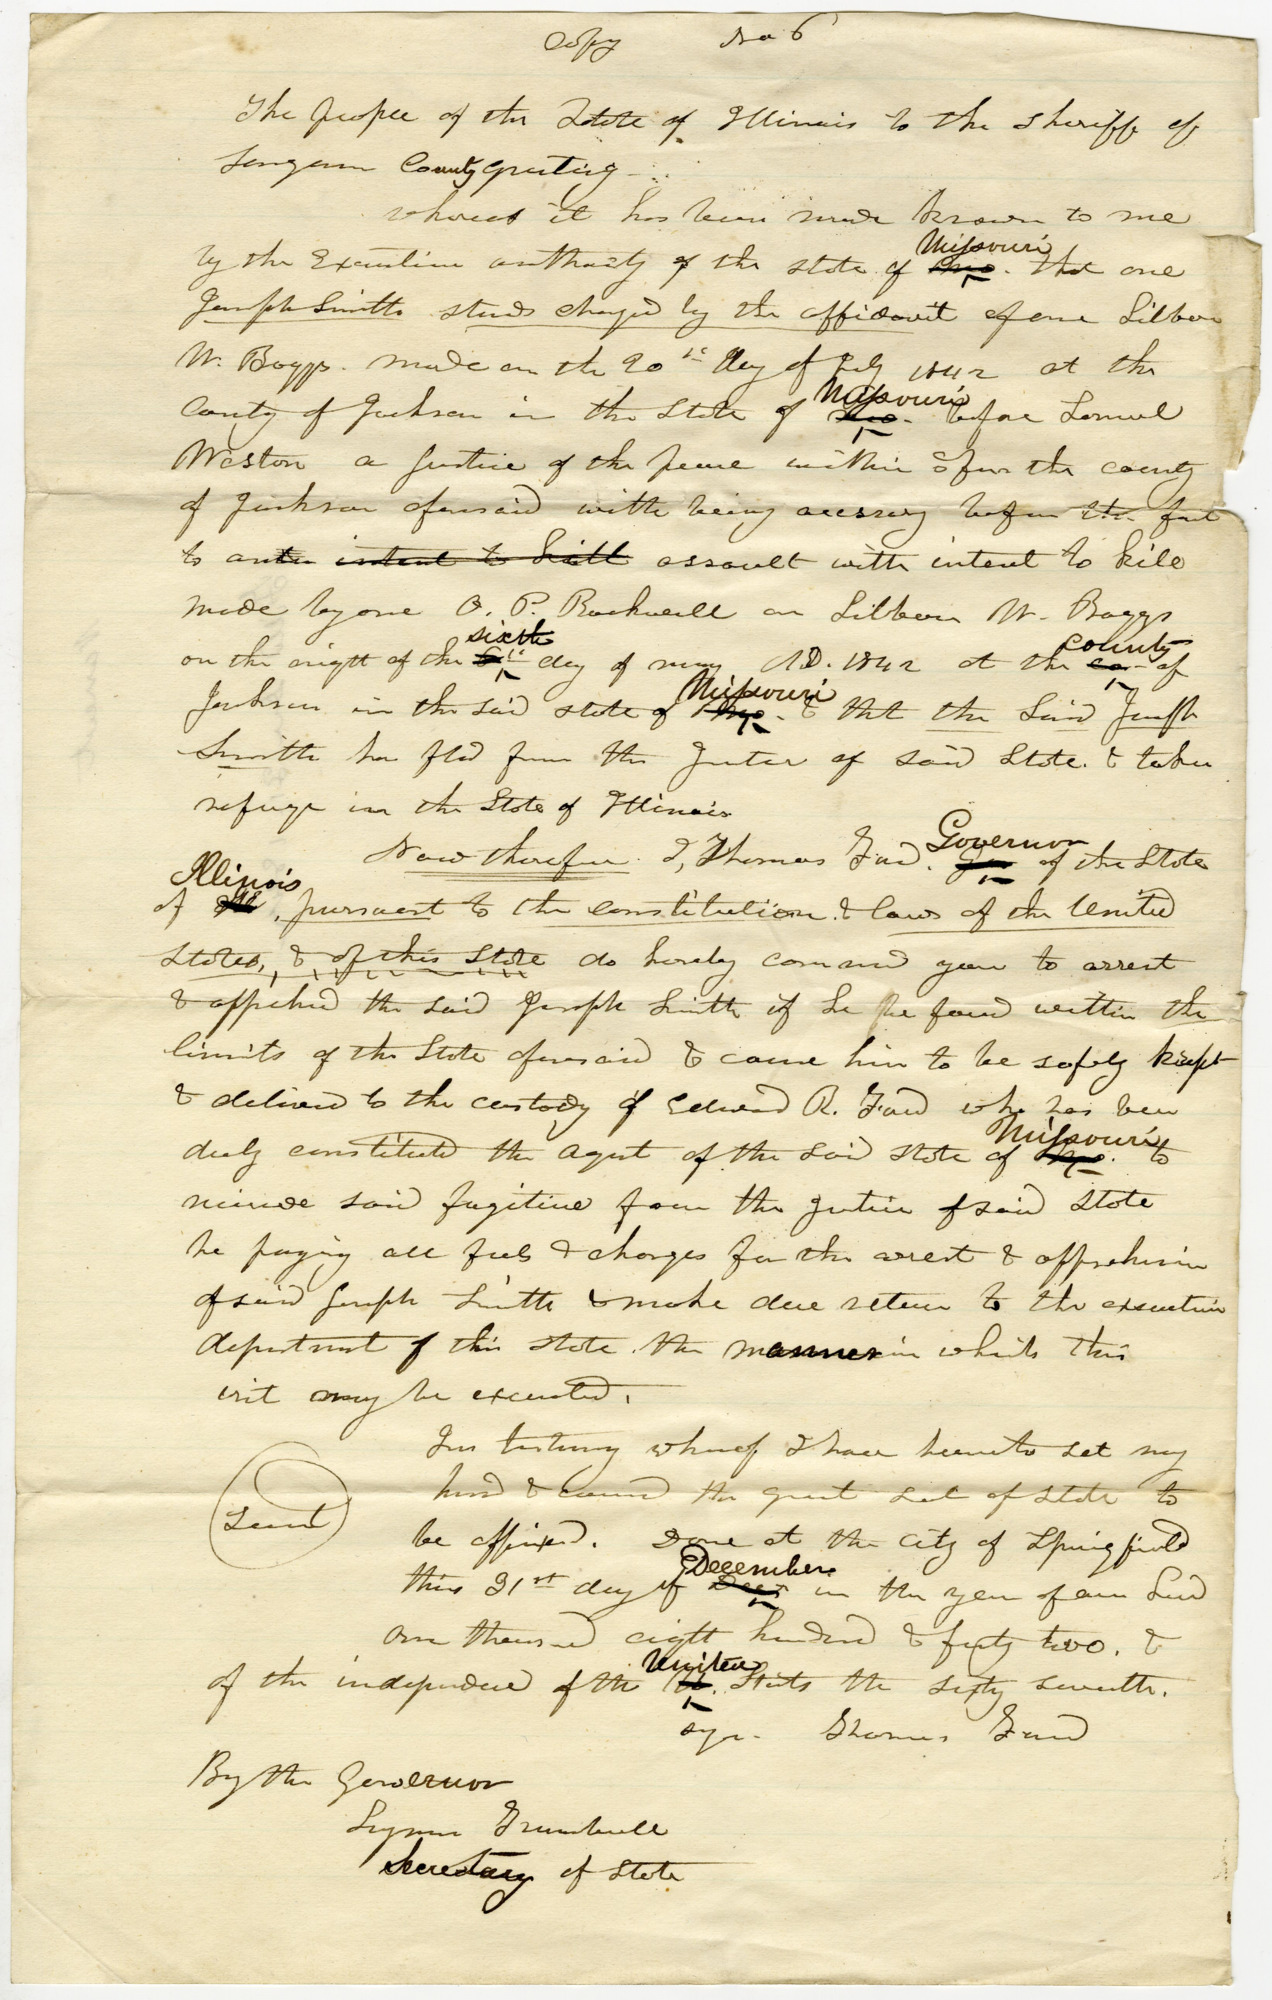 Copy No 6
The people of the State of Illinois to the Sheriff of
Sangamon County greeting
whereas it has been made known to me
by the Executive authority of the state of Missouri Mo. that one
Joseph Smith stands charged by the affidavit of one Lilburn
W. Boggs. made on the 20th day of July 1842 at the
County of Jackson in the State of Missouri Mo. before Samuel
Weston a Justice of the peace within & for the county
of Jackson aforesaid with being accessary before the fact
to an intent to kill assault with intent to kill
made by one O. P. Rockwell on Lilburn W. Boggs
on the night of the sixth 6th day of may AD. 1842 at the county co. of
Jackson in the said state of Missouri Mo. & that the Said Joseph
Smith has fled from the Justice of said State. & taken
refuge in the State of Illinois
Now therefore I, Thomas Ford. Governor of the State
of Illinois Ill, pursuant to the constitution & laws of the United
States, & of this State do hereby command you to arrest
& apprehend the said Joseph Smith if he be found within the
limits of the State aforesaid & cause him to be safely kept
& delivered to the custody of Edward R. Ford who has been
duly constituted the agent of the said state of Missouri Mo. to
receive said fugitive from the Justice of said State
he paying all fees & charges for the arrest & apprehension
of said Joseph Smith & make due return to the executive
department of this State. the manner in which this
writ may be executed.
In testimony whereof I have hereunto set my
hand & caused the great seal of state to
be affixed. Done at the City of Springfield
this 31st day of December Decr in the year of our Lord
one thousand eight hundred & forty two. &
of the independence of the United U. States the sixty seventh.
Seal
Thomas Ford
By the Governor
Lyman Trumbull
Secretary of State